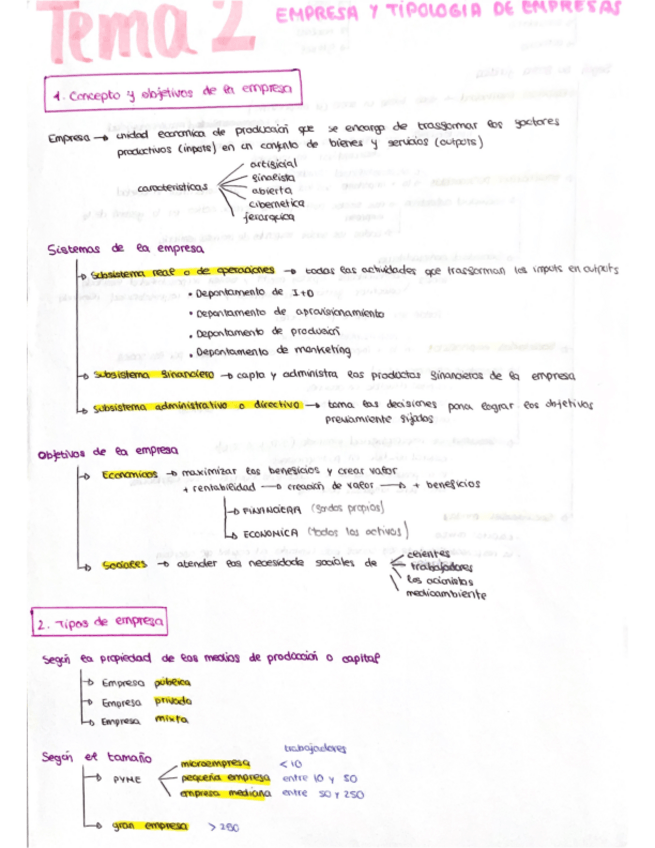 Tema 2 EMPRESA Y TIPOLOGIA DE EMPRESAS
1. Concepto y objetivos de la empresa
Empresa → unidad economica de producción que se encarga de trasformar los factores
productivos (inputs) en un conjunto de bienes y servicios (outputs)
caracteristicas
artificial
finalista
abierta
cibernetica
jerarquica
Sistemas de la empresa
→ Subsistema real o de operaciones → todas las actividades que trasforman los inputs en outputs
• Departamento de I+D
• Departamento de aprovisionamiento
• Departamento de producción
• Departamento de marketing
→ Subsistema financiero → capta y administra los productos financieros de la empresa
→ Subsistema administrativo o directivo → toma las decisiones para lograr los objetivos
previamente fijados
Objetivos de la empresa
→ Económicos → maximizar los beneficios y crear valor
+ rentabilidad → creación de valor → + beneficios
→ FINANCIERA (fondos propios)
→ ECONOMICA (todos los activos)
→ Sociales → atender las necesidade sociales de
clientes
trabajadores
los acionistas
medioambiente
2. Tipos de empresa
Según la propiedad de los medios de producción o capital
→ Empresa pública
→ Empresa privada
→ Empresa mixta
Según el tamaño
trabajadores
→ PYME
microempresa < 10
pequeña empresa entre 10 y 50
empresa mediana entre 50 y 250
→ gran empresa > 250